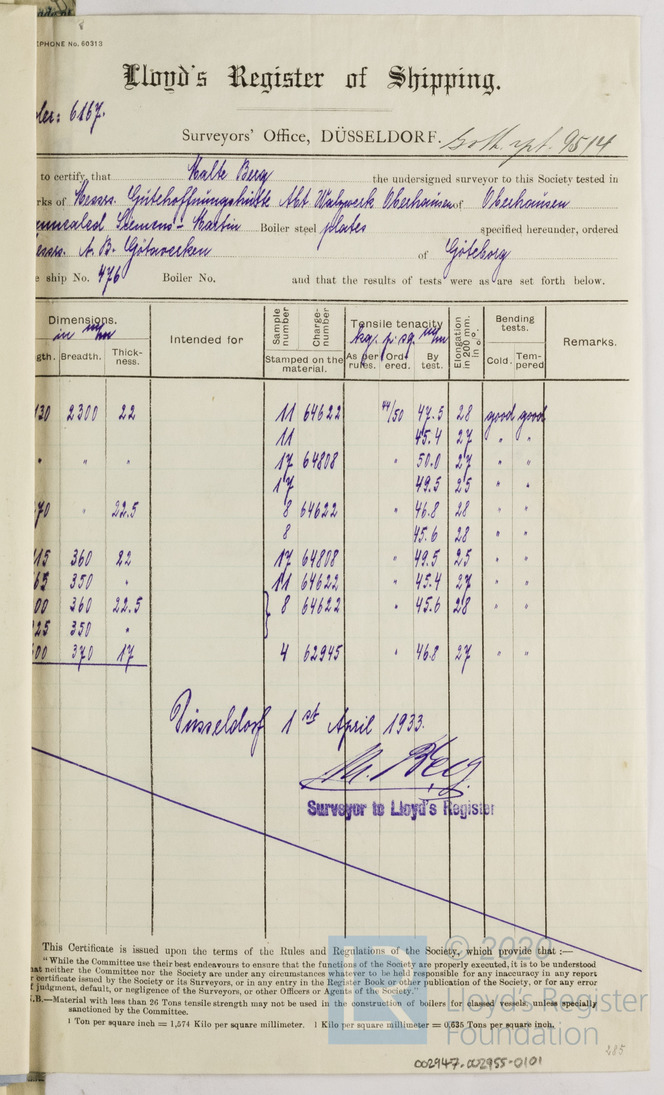 EPHONE No. 60313
Lloyd's Register of Shipping.
6167.
Surveyors' Office, DÜSSELDORF. Goth. rpt. 9514
to certify, that Malte Berg the undersigned surveyor to this Society tested in
rks of Messrs. Gutehoffnungshütte Abt. Walzwerk Oberhausen of Oberhausen
Siemens-Martin Boiler steel plates specified hereunder, ordered
essrs. A. B. Götaverken of Göteborg
e ship No. 476 Boiler No. and that the results of tests were as are set forth below.
Dimensions. in m/m
gth. Breadth. Thick-ness.
Intended for
Sample number Charge-number
Stamped on the material.
Tensile tenacity Kg. p. sq. m/m
As per rules. Ord-ered. By test.
Elongation in 200 mm. in %.
Bending tests.
Cold. Tem-pered
Remarks.
130 2300 22 11 64622 44/50 47.5 28 good good
11 45.4 27 " "
" " " 17 64808 " 50.0 27 " "
17 49.5 25 " "
70 " 22.5 8 64622 " 46.8 28 " "
8 45.6 28 " "
15 360 22 17 64808 " 49.5 25 " "
65 350 " 11 64622 " 45.4 27 " "
00 360 22.5 8 64622 " 45.6 28 " "
25 350 "
00 370 17 4 62945 " 46.8 27 " "
Düsseldorf 1st April 1933.
M. Berg
Surveyor to Lloyd's Register
This Certificate is issued upon the terms of the Rules and Regulations of the Society, which provide that :—
"While the Committee use their best endeavours to ensure that the functions of the Society are properly executed, it is to be understood
hat neither the Committee nor the Society are under any circumstances whatever to be held responsible for any inaccuracy in any report
r certificate issued by the Society or its Surveyors, or in any entry in the Register Book or other publication of the Society, or for any error
f judgment, default, or negligence of the Surveyors, or other Officers or Agents of the Society."
.B.—Material with less than 26 Tons tensile strength may not be used in the construction of boilers for classed vessels, unless specially
sanctioned by the Committee.
1 Ton per square inch = 1,574 Kilo per square millimetre. 1 Kilo per square millimetre = 0,635 Tons per square inch.
© 2020
Lloyd's Register
Foundation
285
002947-002955-0101